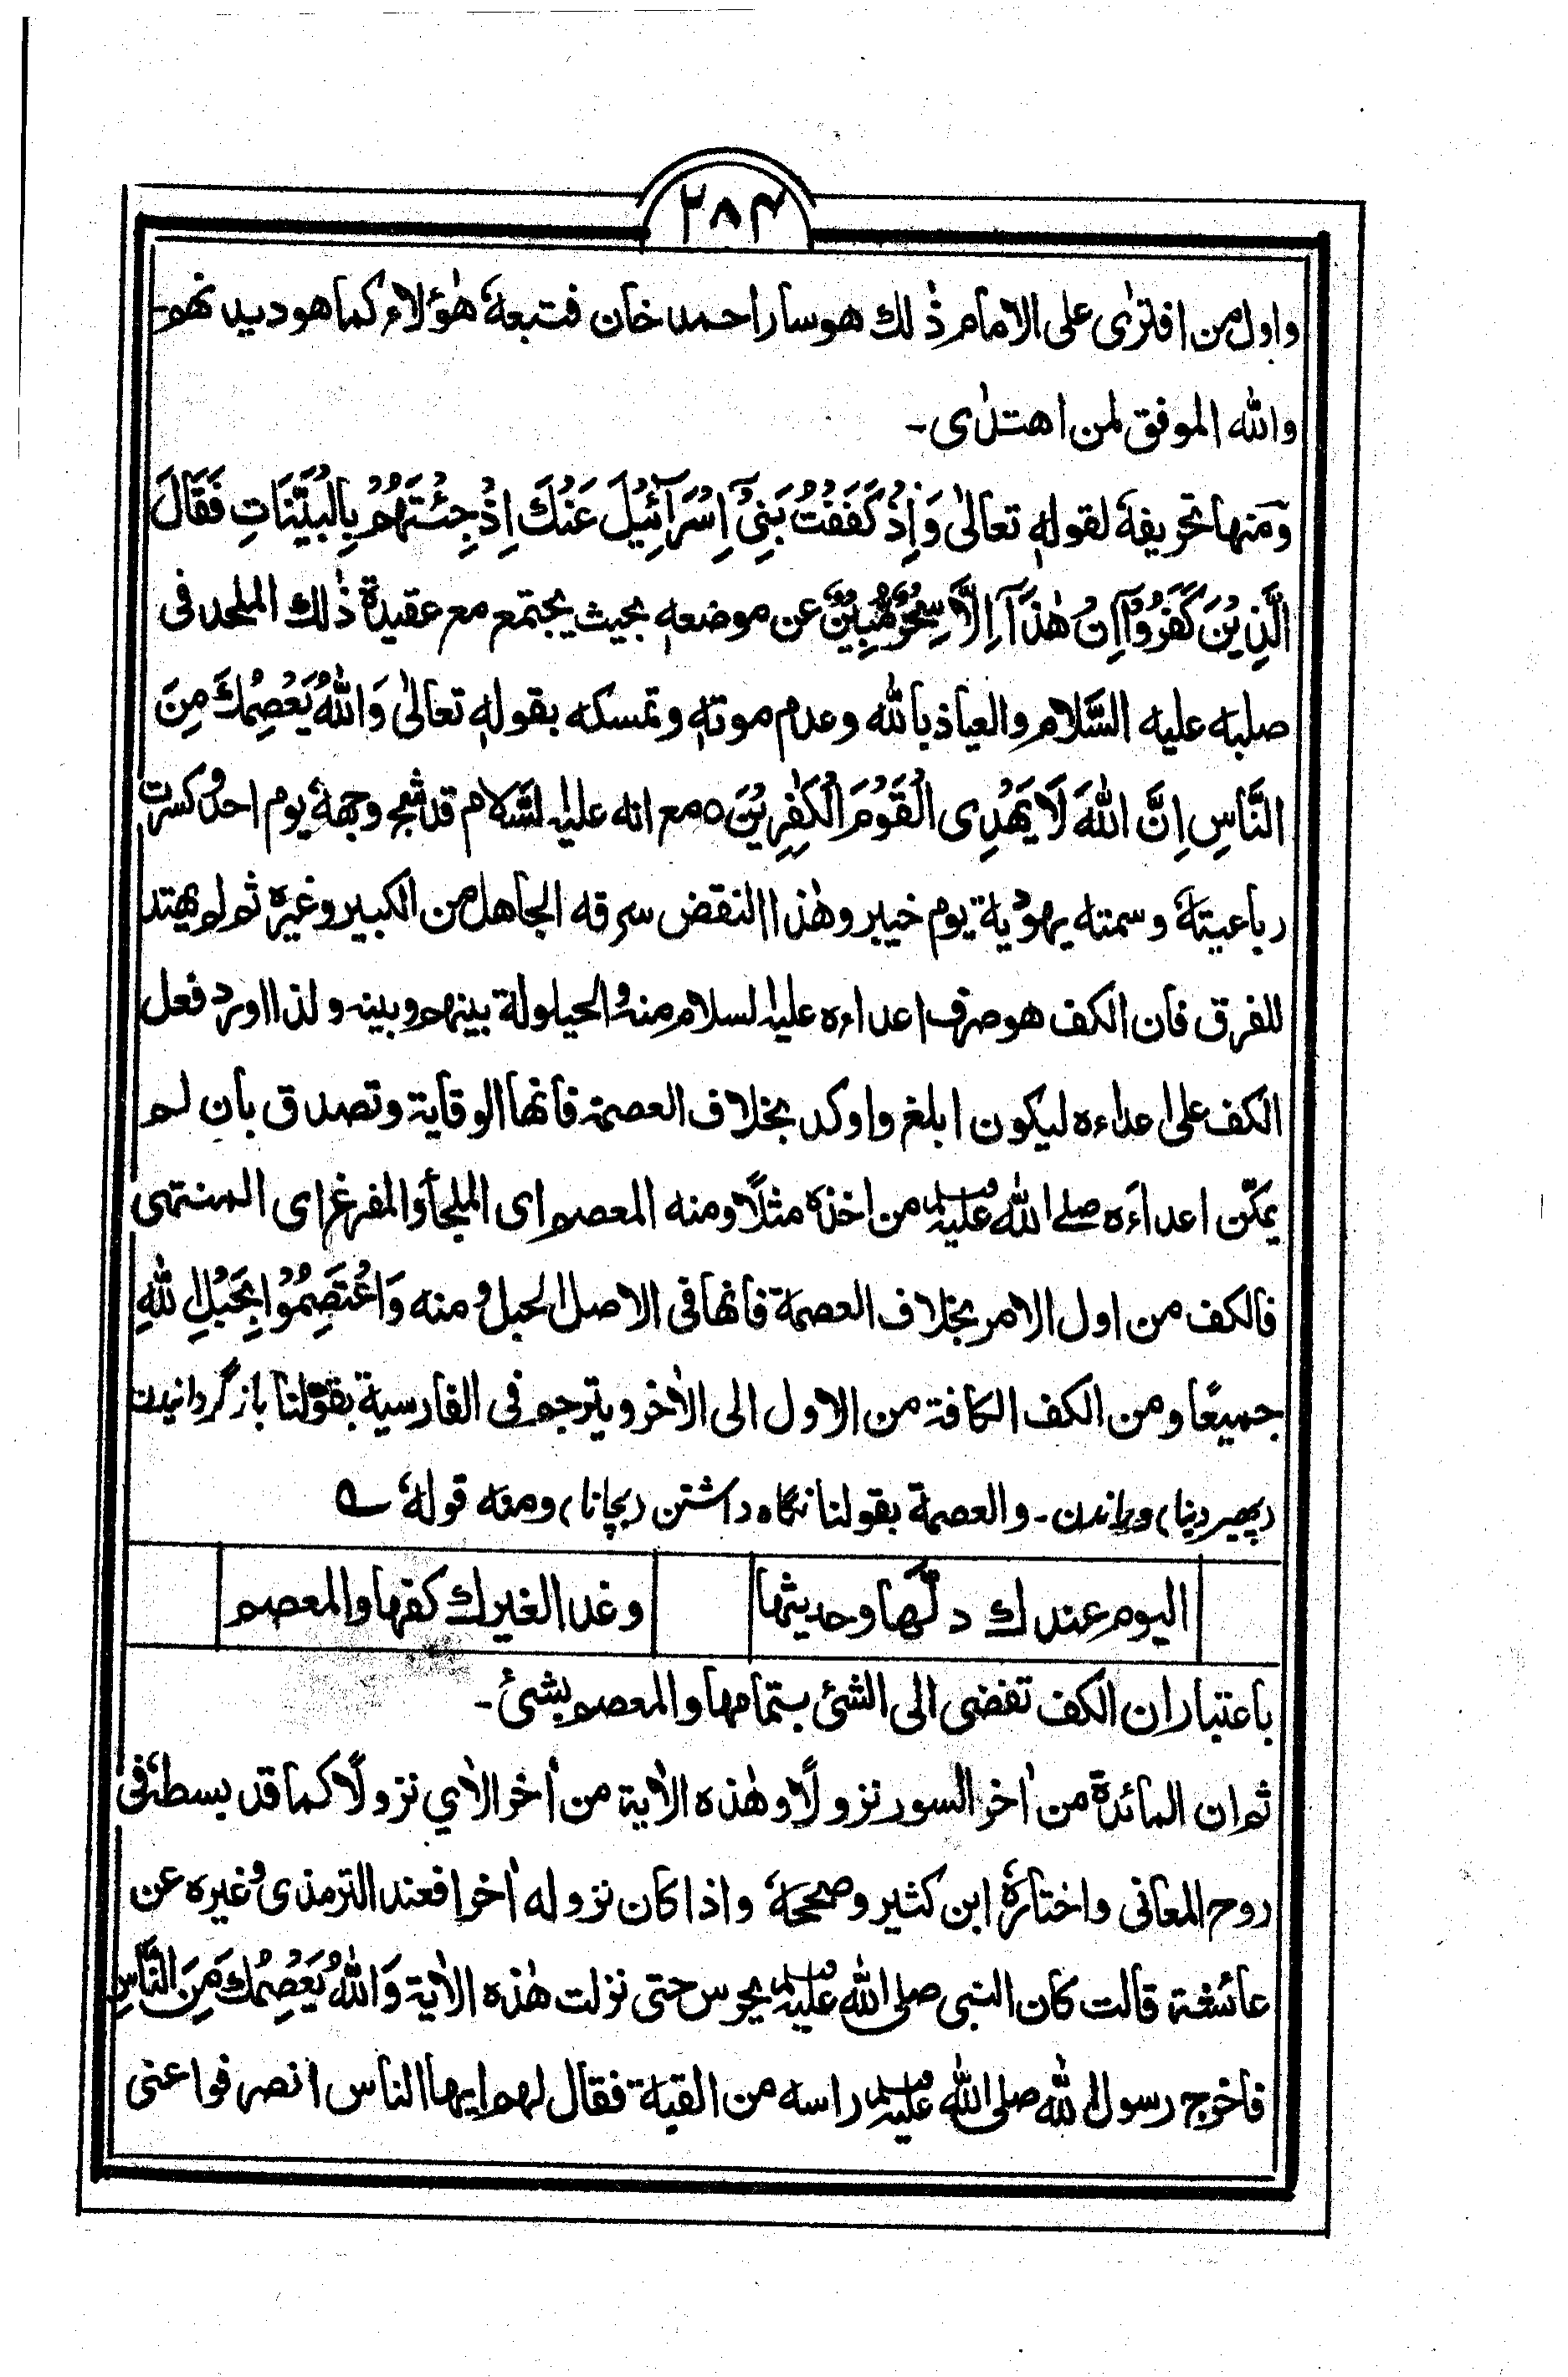 ۲۸۴
واول من افترٰی علی الامام ذٰلك هو سار احمد خان فتبعهٗ هٰؤلاء كما هو ديدنهم
والله الموفق لمن اهتدٰی۔
ومنها تحريفهٗ لقولهٖ تعالٰی وَاِذْ كَفَفْتُ بَنِیْٓ اِسْرَآئِيْلَ عَنْكَ اِذْ جِئْتَهُمْ بِالْبَيِّنَاتِ فَقَالَ
الَّذِيْنَ كَفَرُوْٓا اِنْ هٰذَآ اِلَّا سِحْرٌ مُّبِيْنٌ عن موضعهٖ بحيث يجتمع مع عقيدة ذٰلك الملحد فی
صلبه عليه السَّلام والعياذ بالله وعدم موتهٖ وتمسكه بقولهٖ تعالٰی وَاللهُ يَعْصِمُكَ مِنَ
النَّاسِ اِنَّ اللهَ لَا يَهْدِی الْقَوْمَ الْكٰفِرِيْنَ ○ مع انه عليه السَّلام قد شج وجههٗ يوم احد وكسرت
رباعيتهٗ وسمته يهودية يوم خيبر وهٰذا النقض سرقه الجاهل من الكبير وغيره ثم لم يهتد
للفرق فان الكف هو صرف اعداءه عليه السلام منه والحيلولة بينهم وبينه ولذا اورد فعل
الكف علی اعداءه ليكون ابلغ واوكد بخلاف العصمة فانها الوقاية وتصدق بان لم
يمكّن اعداءَه صلے الله عليہ وسلم من اخذه مثلًا ومنه المعصم ای الملجأ والمفرغ ای المنتهی
فالكف من اول الامر بخلاف العصمة فانها فی الاصل الحبل ومنه وَاعْتَصِمُوْا بِحَبْلِ اللهِ
جميعًا ومن الكف الكافة من الاول الی الاٰخر ويترجم فی الفارسية بقولنا باز گردانيدن
(پھیر دینا) وراندن۔ والعصمة بقولنا نگاه داشتن (بچانا) ومنه قولهٗ ؎
اليوم عندك دلّها وحديثها وغدا لغيرك كفها والمعصم
باعتبار ان الكف تفضی الی الشئ بتمامها والمعصم بشئ۔
ثم ان المائدة من اٰخر السور نزولًا وهٰذه الاٰية من اٰخر الاٰي نزولًا كما قد بسطهٗ فی
روح المعانی واختارهٗ ابن كثير وصححهٗ واذا كان نزوله اٰخرا فعند الترمذی وغيره عن
عائشة قالت كان النبی صلی الله عليہ وسلم يحرس حتی نزلت هٰذه الاٰية وَاللهُ يَعْصِمُكَ مِنَ النَّاسِ
فاخرج رسول الله صلی الله عليہ وسلم راسه من القبة فقال لهم ايها الناس انصرفوا عنی